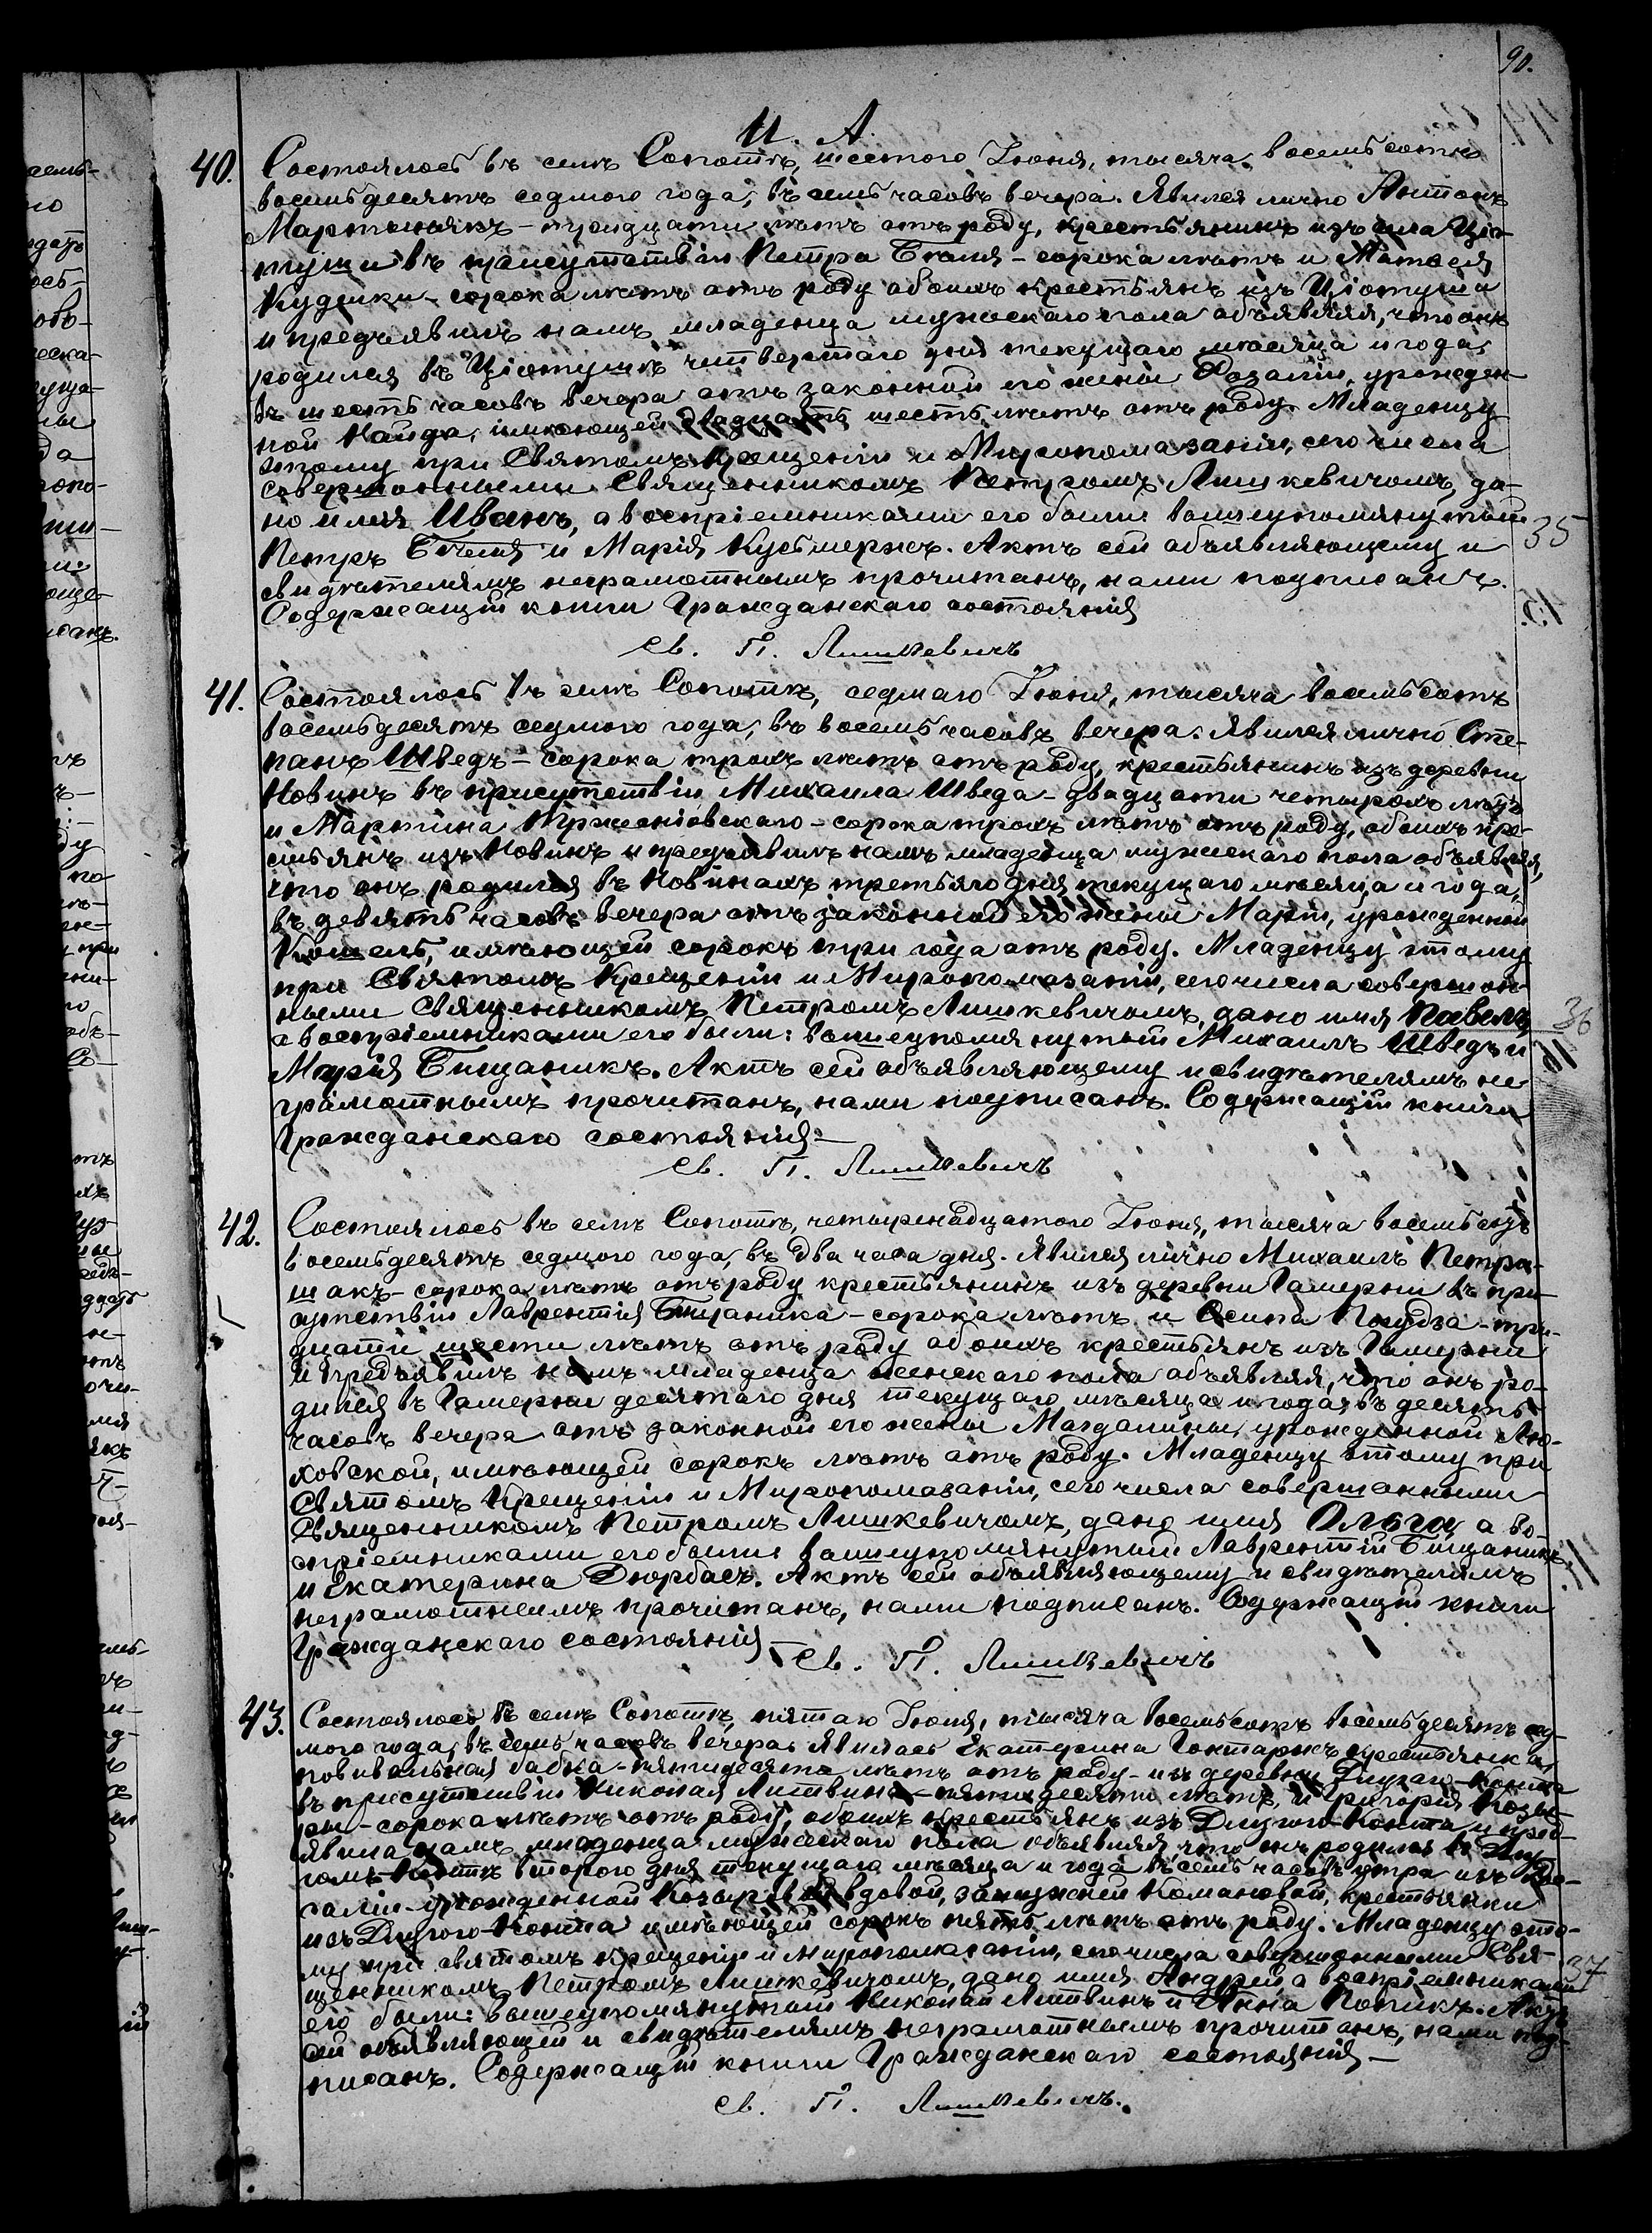 90.
И. А.
40. Состоялось въ селѣ Сопотѣ, шестого Іюня, тысяча восемьсотъ
восемьдесятъ седмого года, въ семь часовъ вечера. Явился лично Антонъ
Мартынякъ - тридцати лѣтъ отъ роду, крестьянинъ изъ села Ціо-
туши въ присутствіи Петра Бѣгмя - сорока лѣтъ и Матвея
Куделки - сорока лѣтъ отъ роду обоихъ крестьянъ изъ Ціотуша
и предъявилъ намъ младенца мужескаго пола объявляя, что онъ
родился въ Ціотушѣ четвертаго дня текущаго мѣсяца и года,
въ шесть часовъ вечера отъ законной его жены Розаліи, урожден-
ной Кайда, имѣющей двадцать шесть лѣтъ отъ роду. Младенцу
этому при Святомъ Крещеніи и Миропомазаніи, сего числа
совершонными Священникомъ Петромъ Лишкевичомъ, да-
но имя Иванъ, а воспріемниками его были вышеупомянутый
Петръ и Марія Кусьмержъ. Актъ сей объявляющему и
свидѣтелямъ неграмотнымъ прочитанъ, нами подписанъ.
Содержащій книги Гражданскаго состоянія
Св. П. Лишкевичъ
35
41. Состоялось въ селѣ Сопотѣ, седмаго Іюня, тысяча восемьсотъ
восемьдесятъ седмого года, въ восемь часовъ вечера. Явился лично Сте-
панъ Шведъ - сорока трехъ лѣтъ отъ роду, крестьянинъ изъ деревни
Новинъ въ присутствіи Михаила Шведа - двадцати четырехъ лѣтъ
и Мартина - сорока трехъ лѣтъ отъ роду, обоихъ кре-
стьянъ изъ Новинъ и предъявилъ намъ младенца мужескаго пола объявляя,
что онъ родился въ Новинахъ третьяго дня текущаго мѣсяца и года,
въ девять часовъ вечера отъ законной его жены Маріи, урожденной
Кошель, имѣющей сорокъ три года отъ роду. Младенцу этому
при Святомъ Крещеніи и Миропомазаніи, сего числа совершон-
ными Священникомъ Петромъ Лишкевичомъ, дано имя Павелъ,
а воспріемниками его были: вышеупомянутый Михаилъ Шведъ и
Марія Бищаникъ. Актъ сей объявляющему и свидѣтелямъ не-
грамотнымъ прочитанъ, нами подписанъ. Содержащій книги
Гражданскаго состоянія -
Св. П. Лишкевичъ
36
42. Состоялось въ селѣ Сопотѣ, четырнадцатого Іюня, тысяча восемьсотъ
восемьдесятъ седмого года, въ два часа дня. Явился лично Михаилъ Петри-
шакъ - сорока лѣтъ отъ роду крестьянинъ изъ деревни Гамерни въ при-
сутствіи Лаврентія Бищаника - сорока лѣтъ и Осипа - три-
дцати шести лѣтъ отъ роду обоихъ крестьянъ изъ Гамерни
и предъявилъ намъ младенца женскаго пола объявляя, что онъ ро-
дился въ Гамерни десятаго дня текущаго мѣсяца и года въ десять
часовъ вечера отъ законной его жены Магдалины, урожденной Лю-
ховской, имѣющей сорокъ лѣтъ отъ роду. Младенцу этому при
Святомъ Крещеніи и Миропомазаніи, сего числа совершонными
Священникомъ Петромъ Лишкевичомъ, дано имя Ольга, а во-
спріемниками его были: вышеупомянутый Лаврентій Бищаникъ
и Екатерина Дюрбасъ. Актъ сей объявляющему и свидѣтелямъ
неграмотнымъ прочитанъ, нами подписанъ. Содержащій книги
Гражданскаго состоянія -
Св. П. Лишкевичъ
43. Состоялось въ селѣ Сопотѣ, пятаго Іюня, тысяча восемьсотъ восемьдесятъ сед-
мого года, въ семь часовъ вечера. Явилась Екатерина Гонтаржъ крестьянка,
повивальная бабка - пятидесяти лѣтъ отъ роду - изъ деревни Длугаго-Конта
въ присутствіи Николая Литвина - пятидесяти лѣтъ, и Григорія Козы-
ры - сорока лѣтъ отъ роду, обоихъ крестьянъ изъ Длугого-Конта и предъ-
явила намъ младенца мужескаго пола объявляя что онъ родился въ Длу-
гомъ-Контѣ второго дня текущаго мѣсяца и года въ семь часовъ утра изъ Ро-
саліи урожденной вдовой, замужней Комановой, крестьянки
изъ Длугого-Конта имѣющей сорокъ пять лѣтъ отъ роду. Младенцу это-
му при святомъ крещеніи и миропомазаніи, сего числа совершонными Свя-
щенникомъ Петромъ Лишкевичомъ, дано имя Андрей а воспріемниками
его были: вышеупомянутый Николай Литвинъ и Анна Попикъ. Актъ
сей объявляющей и свидѣтелямъ неграмотнымъ прочитанъ, нами под-
писанъ. Содержащій книги Гражданскаго состоянія -
Св. П. Лишкевичъ.
37